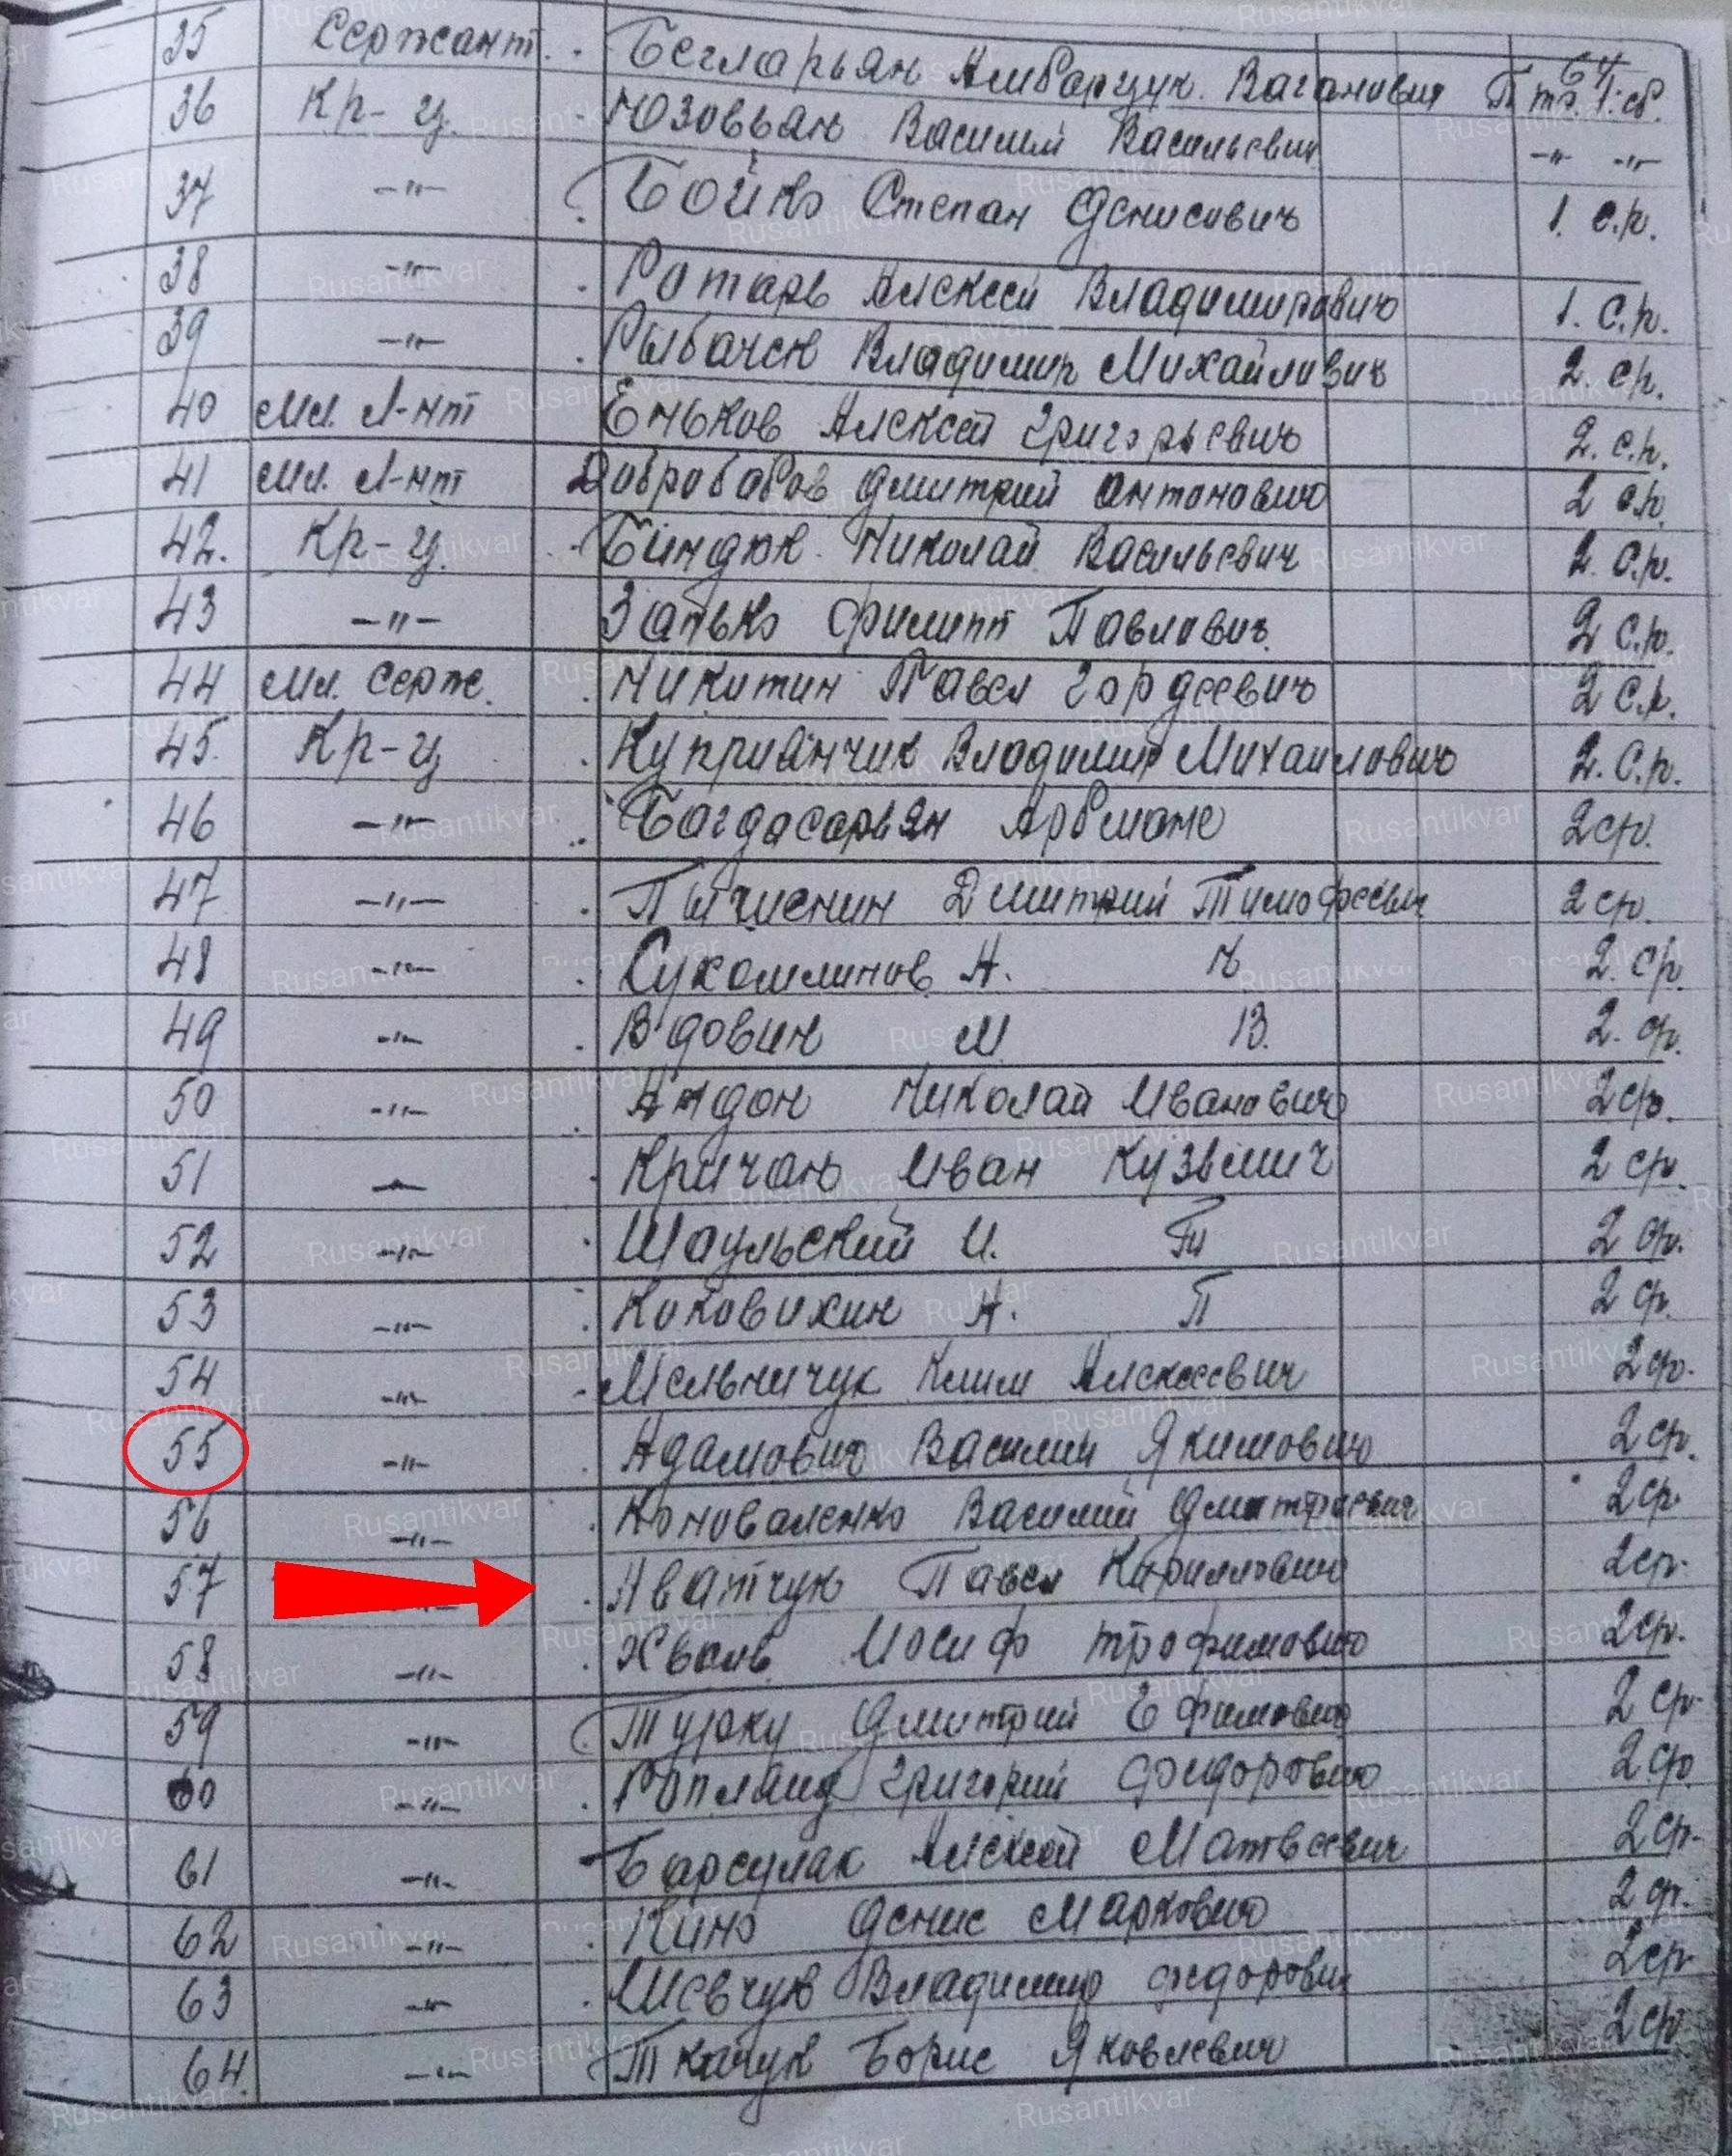 64
35 Сержант. Бегларьян Амбарцук. Ваганович Птр. 1. сб.
36 Кр-ц. Юзовьян Василий Васильевич -"- -"-
37 -"- Бойко Степан Денисович 1. с.р.
38 -"- Ротарь Алексей Владимирович 1. с.р.
39 -"- Рыбачек Владимир Михайлович 2. ср.
40 Мл. Л-нт Еньков Алексей Григорьевич 2. с.р.
41 Мл. Л-нт Добробабов Дмитрий Антонович 2 с.р.
42. Кр-ц. Биндюк Николай Васильевич 2. с.р.
43 -"- Запько Филипп Павлович. 2 с.р.
44 Мл. Серж. Никитин Павел Гордеевич 2 с.р.
45. Кр-ц Куприянчик Владимир Михайлович 2. с.р.
46 -"- Багдасарьян 2 ср.
47 -"- Дмитрий Тимофеевич 2 ср.
48 -"- Сухомлинов А. 2. ср.
49 -"- Вдовин М В. 2. ср.
50 -"- Андон Николай Иванович 2 ср.
51 -"- Кричан Иван Кузьмич 2 ср.
52 -"- Шаульский И. П 2 ср.
53 -"- Коковихин А. П 2 ср.
54 -"- Мельничук Клим Алексеевич 2 ср.
55 -"- Адамович Василий Якимович 2 ср.
56 -"- Коноваленко Василий Дмитриевич 2 ср.
57 -"- Аватчук Павел Кириллович 2 ср.
58 -"- Хваль Иосиф Трофимович 2 ср.
59 -"- Турку Дмитрий Ефимович 2 ср.
60 -"- Григорий Федорович 2 ср.
61 -"- Барсулак Алексей Матвеевич 2 ср.
62 -"- Кино Денис Маркович 2 ср.
63 -"- Шевчук Владимир Федорович 2 ср
64. -"- Ткачук Борис Яковлевич 2 ср
Rusantikvar